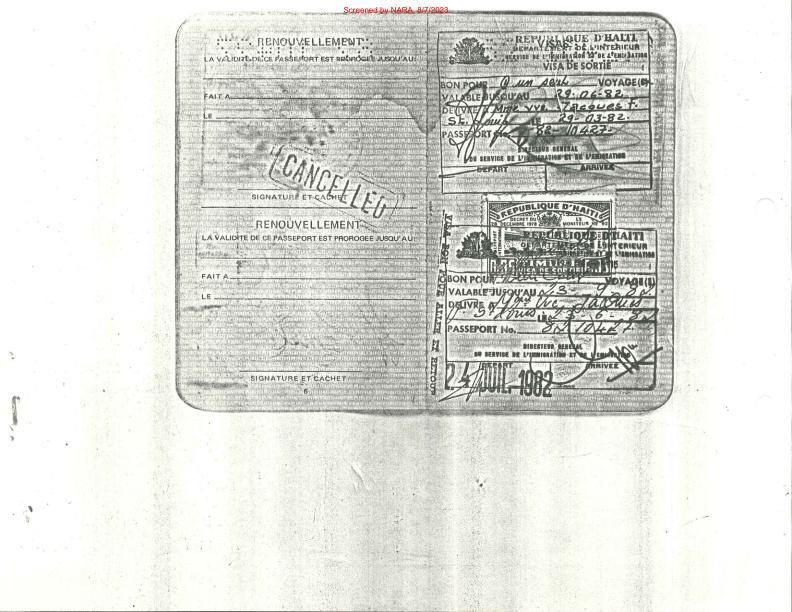 Screened by NARA, 8/7/2023
RENOUVELLEMENT
LA VALIDITE DE CE PASSEPORT EST PROROGEE JUSQU'AU:
FAIT A
LE
CANCELLED
SIGNATURE ET CACHET
RENOUVELLEMENT
LA VALIDITE DE CE PASSEPORT EST PROROGEE JUSQU'AU:
FAIT A
LE
SIGNATURE ET CACHET
6
REPUBLIQUE D'HAITI
DEPARTEMENT DE L'INTERIEUR
SERVICE DE L'IMMIGRATION ET DE L'EMIGRATION
VISA DE SORTIE
BON POUR un seul VOYAGE(S)
VALABLE JUSQU'AU 29-06-82
DELIVRE A Mme Vve Jacques F.
St. Louis LE 29-03-82.
PASSEPORT No. 82-10427-
DIRECTEUR GENERAL
DU SERVICE DE L'IMMIGRATION ET DE L'EMIGRATION
DEPART ARRIVEE
REPUBLIQUE D'HAITI
DECRET DU LE
DECEMBRE 1978 MONITEUR
REPUBLIQUE D'HAITI
DEPARTEMENT DE L'INTERIEUR
BON POUR VOYAGE(S)
VALABLE JUSQU'AU 23-9-82
DELIVRE A Mme Vve Jacques
St Louis LE 23-6-82
PASSEPORT No. 82 10427
DIRECTEUR GENERAL
DU SERVICE DE L'IMMIGRATION ET DE L'EMIGRATION
ARRIVEE
24 JUIL 1982